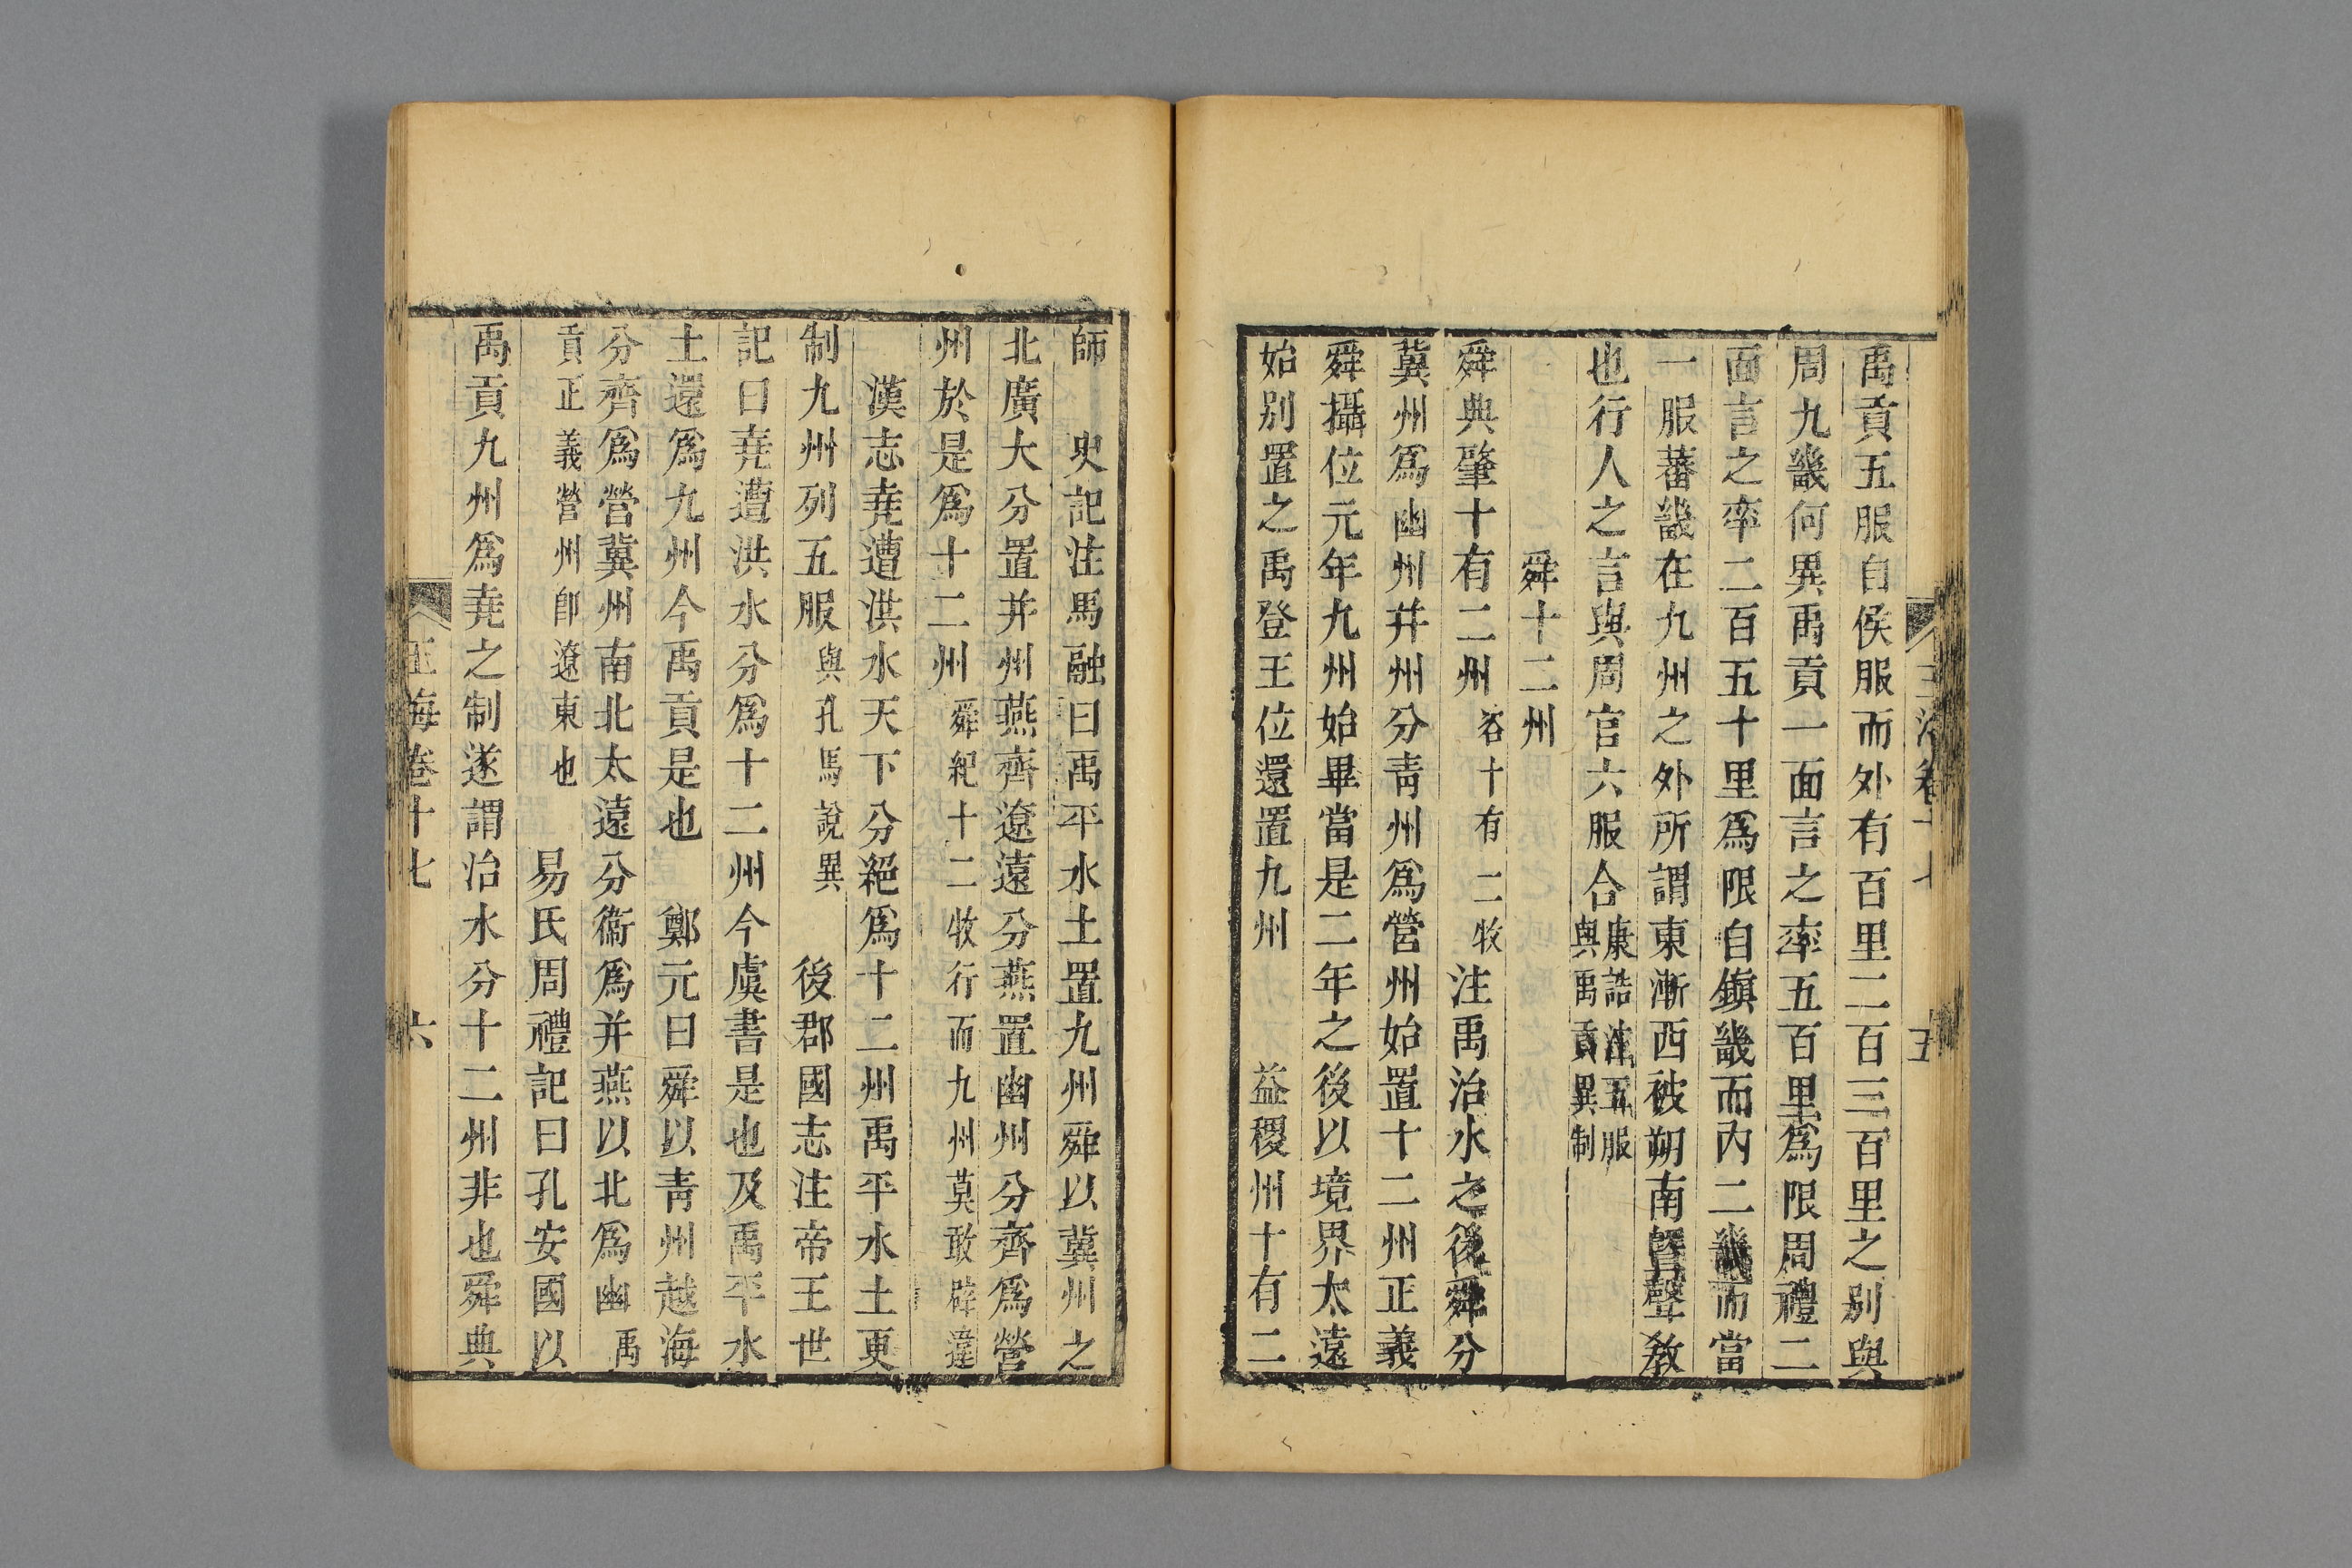 禹貢五服自侯服而外有百里二百三百里之別與
周九畿何異禹貢一面言之率五百里爲限周禮二
面言之率二百五十里爲限自鎮畿而內二畿而當
一服蕃畿在九州之外所謂東漸西被朔南曁聲敎
也行人之言與周官六服合康誥注五服與禹貢異制
舜十二州
舜典肇十有二州咨十有二牧注禹治水之後舜分
冀州爲幽州幷州分靑州爲營州始置十二州正義
舜攝位元年九州始畢當是二年之後以境界太遠
始別置之禹登王位還置九州 益稷州十有二
師 史記注馬融曰禹平水土置九州舜以冀州之
北廣大分置幷州燕齊遼遠分燕置幽州分齊爲營
州於是爲十二州舜紀十二牧行而九州莫敢辟違
漢志堯遭洪水天下分絕爲十二州禹平水土更
制九州列五服與孔馬說異 後郡國志注帝王世
記曰堯遭洪水分爲十二州今虞書是也及禹平水
土還爲九州今禹貢是也 鄭元曰舜以靑州越海
分齊爲營冀州南北太遠分衞爲幷燕以北爲幽禹
貢正義營州卽遼東也 易氏周禮記曰孔安國以
禹貢九州爲堯之制遂謂治水分十二州非也舜典
玉海卷十七 六